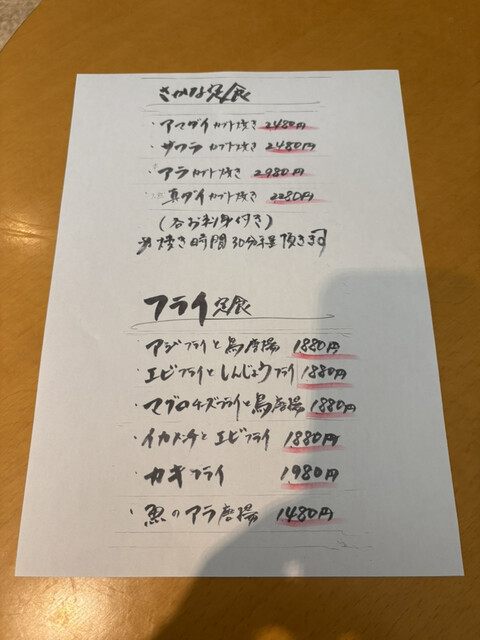 さかな定食
・アマダイカブト焼き 2480円
・サワラカブト焼き 2480円
・アラカブト焼き 2980円
・真ダイカブト焼き 2280円
(各お刺身付き)
※焼き時間30分程頂きます
フライ定食
・アジフライと鳥唐揚 1880円
・エビフライとしんじょうフライ 1880円
・マグロチーズフライと鳥唐揚 1880円
・イカメンチとエビフライ 1880円
・カキフライ 1980円
・魚のアラ唐揚 1480円